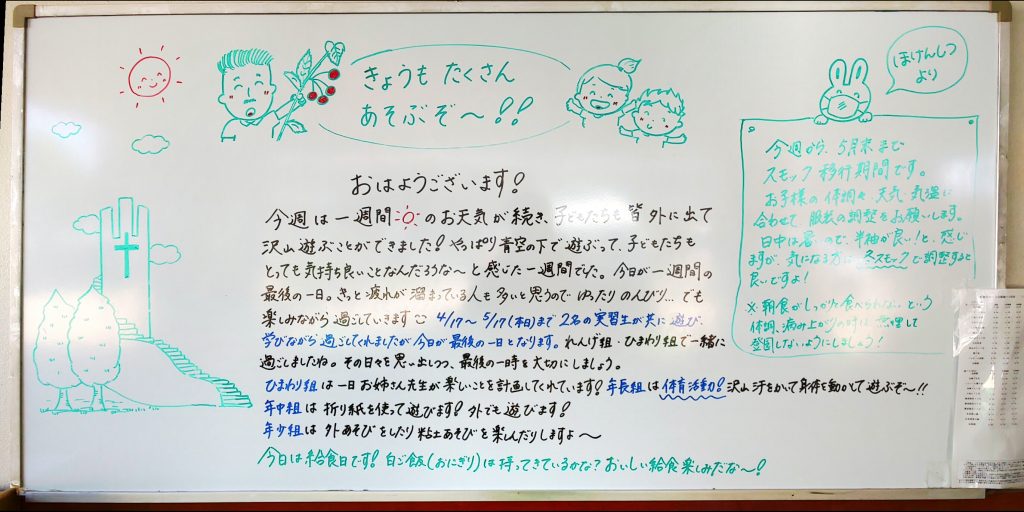 きょうも たくさん
あそぶぞ〜!!
ほけんしつ
より
おはようございます!
今週は一週間のお天気が続き、子どもたちも皆外に出て
沢山遊ぶことができました!やっぱり青空の下で遊ぶって、子どもたちも
とっても気持ち良いことなんだろうな〜と感じた一週間でした。今日が一週間の
最後の一日。きっと疲れが溜まっている人も多いと思うので ゆったり のんびり…でも
楽しみながら過ごしていきます 4/17〜5/17(本日)まで 2名の実習生が共に遊び、
学びながら過ごしてくれましたが今日が最後の一日となります。れんげ組・ひまわり組で一緒に
過ごしましたね。その日々を思い出しつつ、最後の一時を大切にしましょう。
ひまわり組は一日お姉さん先生が楽しいことを計画してくれています!年長組は体育活動!沢山汗をかいて身体を動かして遊ぶぞ〜!!
年中組は 折り紙を使って遊びます!外でも遊びます!
年少組は 外あそびをしたり粘土あそびを楽しんだりしますよ〜
今日は給食日です!白ご飯(おにぎり)は持ってきているかな?おいしい給食楽しみだな〜!
今週から、5月末まで
スモック移行期間です。
お子様の体調や天気・気温に
合わせて 服装の調整をお願いします。
日中は暑いので、半袖が良い!と、感じ
ますが、気になる方は冬スモックで調整すると
良いですよ!
※朝食がしっかり食べられない という
体調、病み上がりの時は無理して
登園しないようにしましょう!